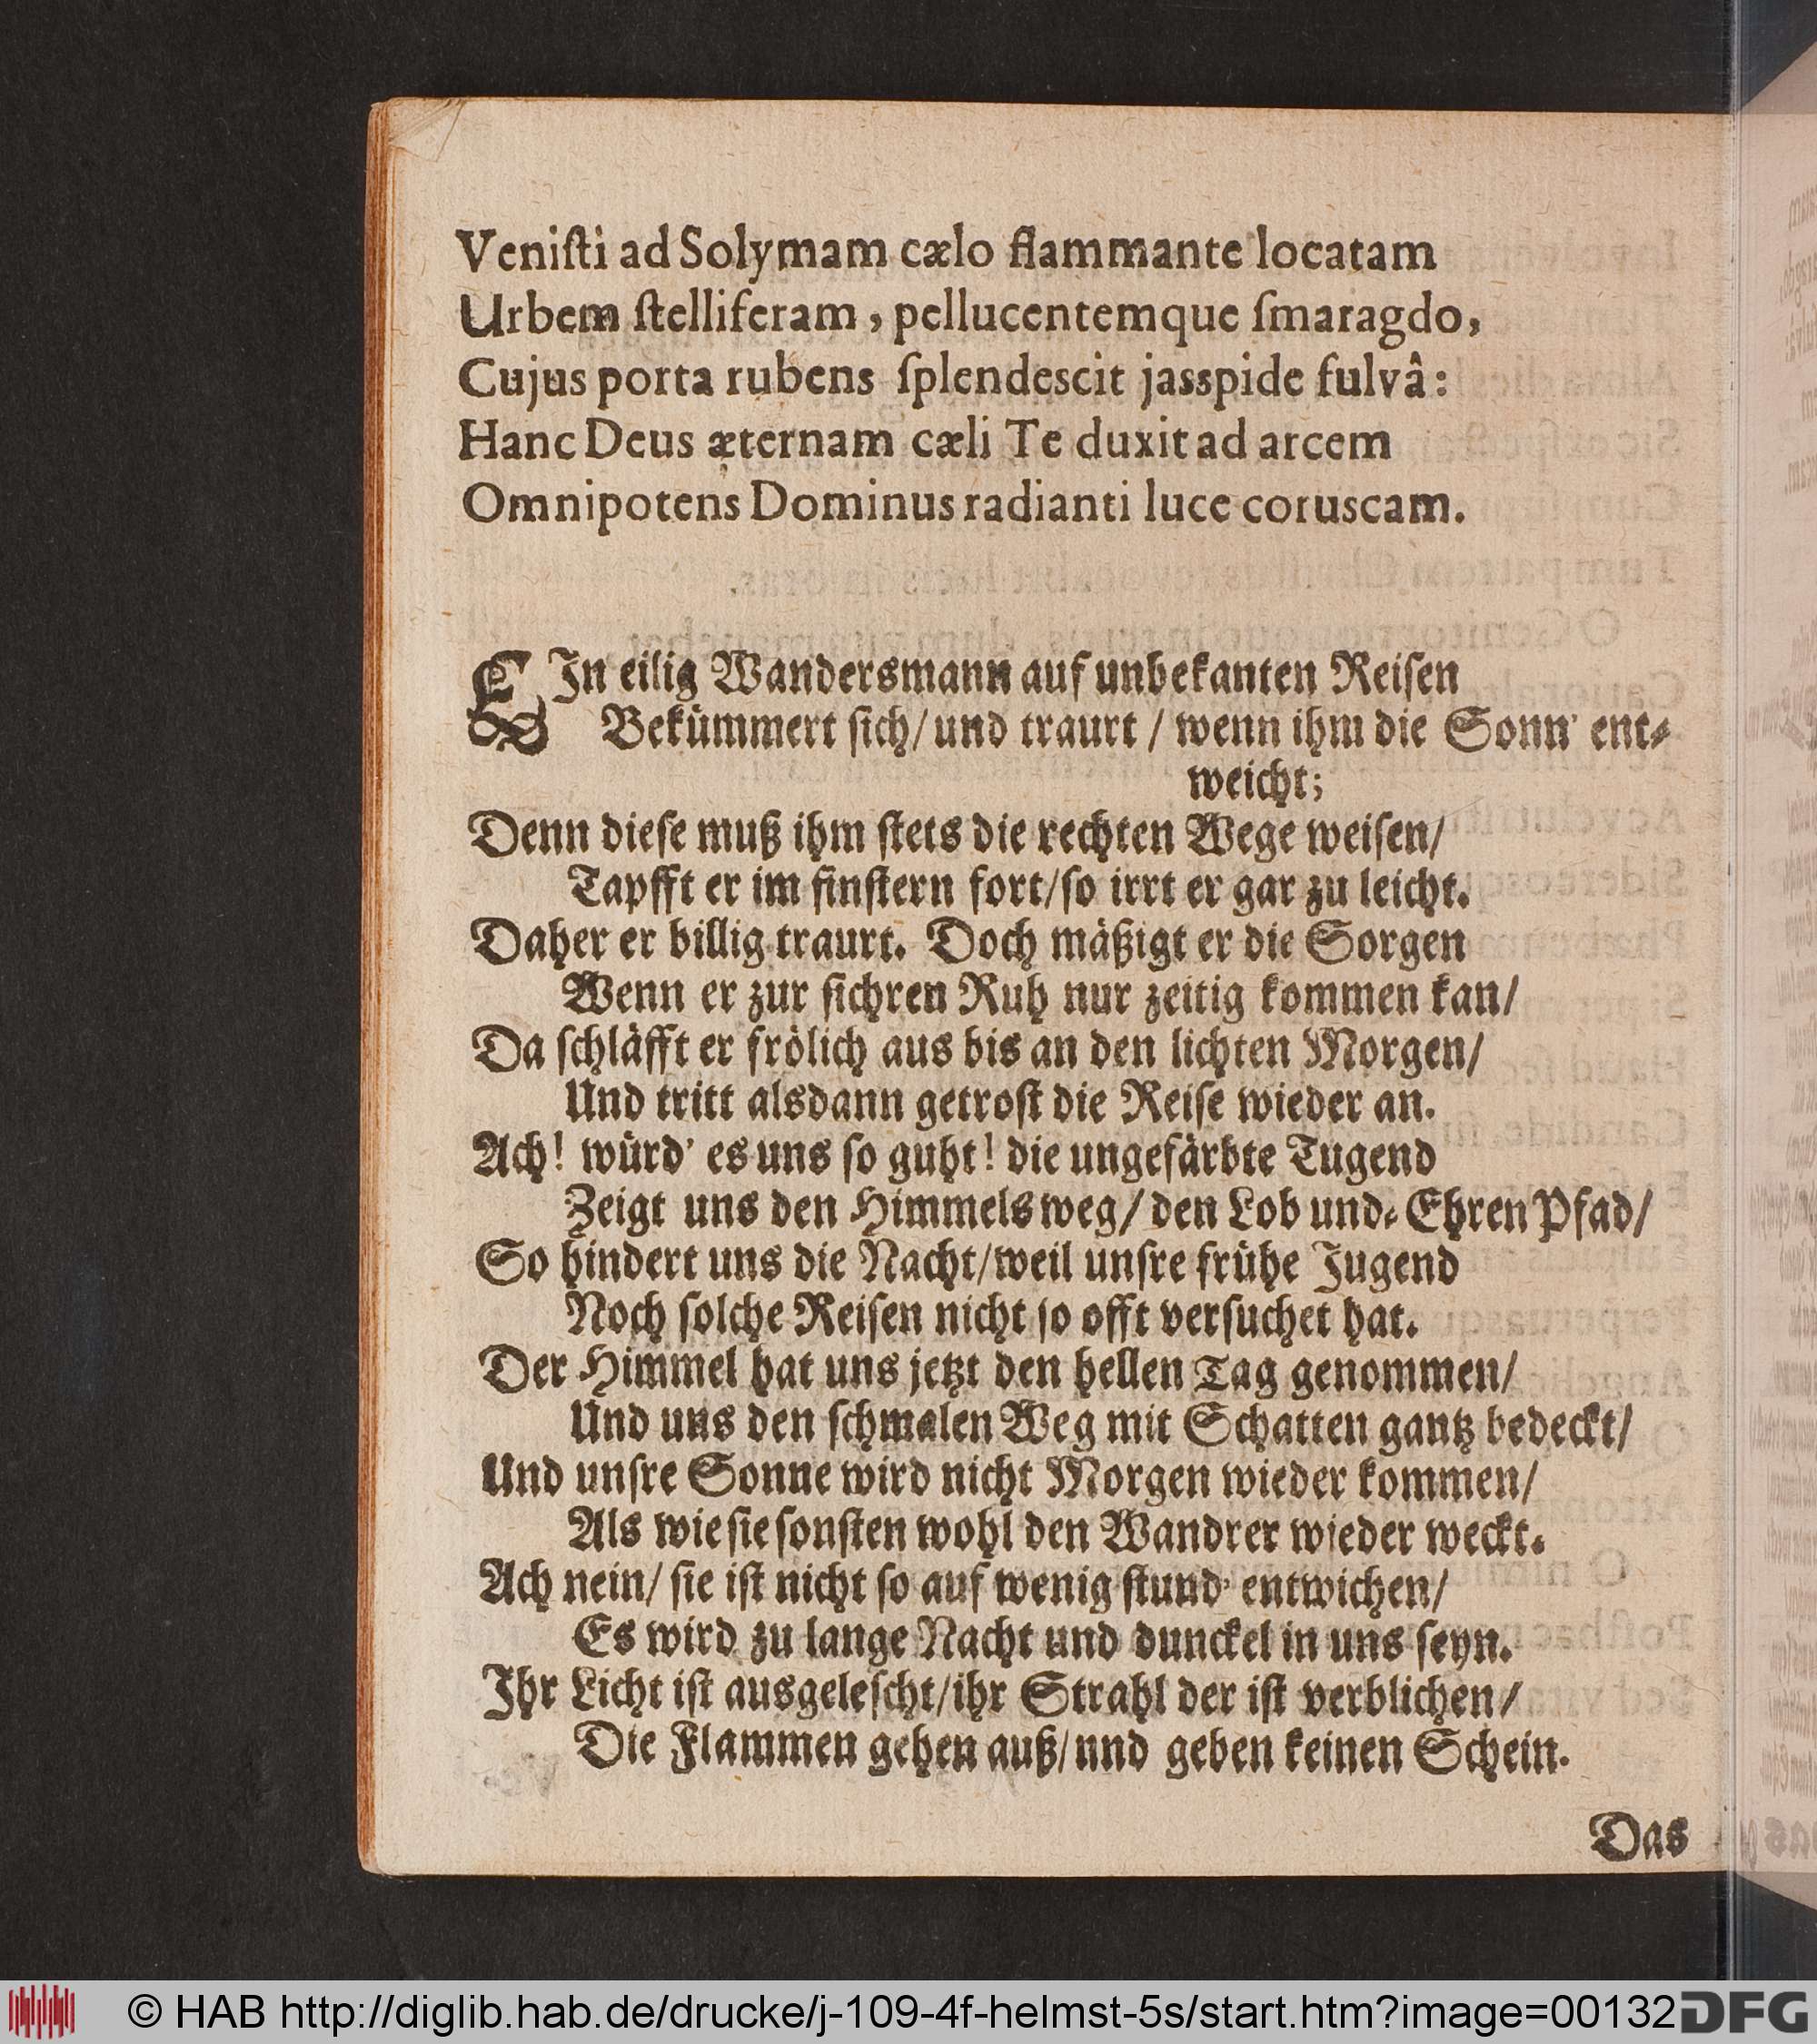 Veniſti ad Solymam cælo flammante locatam
Urbem ſtelliferam, pellucentemque ſmaragdo,
Cujus porta rubens ſplendescit jasspide fulvâ:
Hanc Deus æternam cæli Te duxit ad arcem
Omnipotens Dominus radianti luce coruscam.
EIn eilig Wandersmann auf unbekanten Reiſen
Bekümmert ſich/ und traurt / wenn ihm die Sonn' ent⸗
weicht;
Denn dieſe muß ihm ſtets die rechten Wege weiſen/
Tapfft er im finſtern fort/ ſo irrt er gar zu leicht.
Daher er billig traurt. Doch mäßigt er die Sorgen
Wenn er zur ſichren Ruh nur zeitig kommen kan/
Da ſchläfft er frölich aus bis an den lichten Morgen/
Und tritt alsdann getroſt die Reiſe wieder an.
Ach! würd' es uns ſo guht! die ungefärbte Tugend
Zeigt uns den Himmels weg/ den Lob und⸗ Ehren Pfad/
So hindert uns die Nacht/ weil unſre frühe Jugend
Noch ſolche Reiſen nicht ſo offt verſuchet hat.
Der Himmel hat uns jetzt den hellen Tag genommen/
Und uns den ſchmalen Weg mit Schatten gantz bedeckt/
Und unſre Sonne wird nicht Morgen wieder kommen/
Als wie ſie ſonſten wohl den Wandrer wieder weckt.
Ach nein/ ſie iſt nicht ſo auf wenig ſtund' entwichen/
Es wird zu lange Nacht und dunckel in uns ſeyn.
Ihr Licht iſt ausgeleſcht/ ihr Strahl der iſt verblichen/
Die Flammen gehen auß/ nnd geben keinen Schein.
Das
© HAB http://diglib.hab.de/drucke/j-109-4f-helmst-5s/start.htm?image=00132
DFG